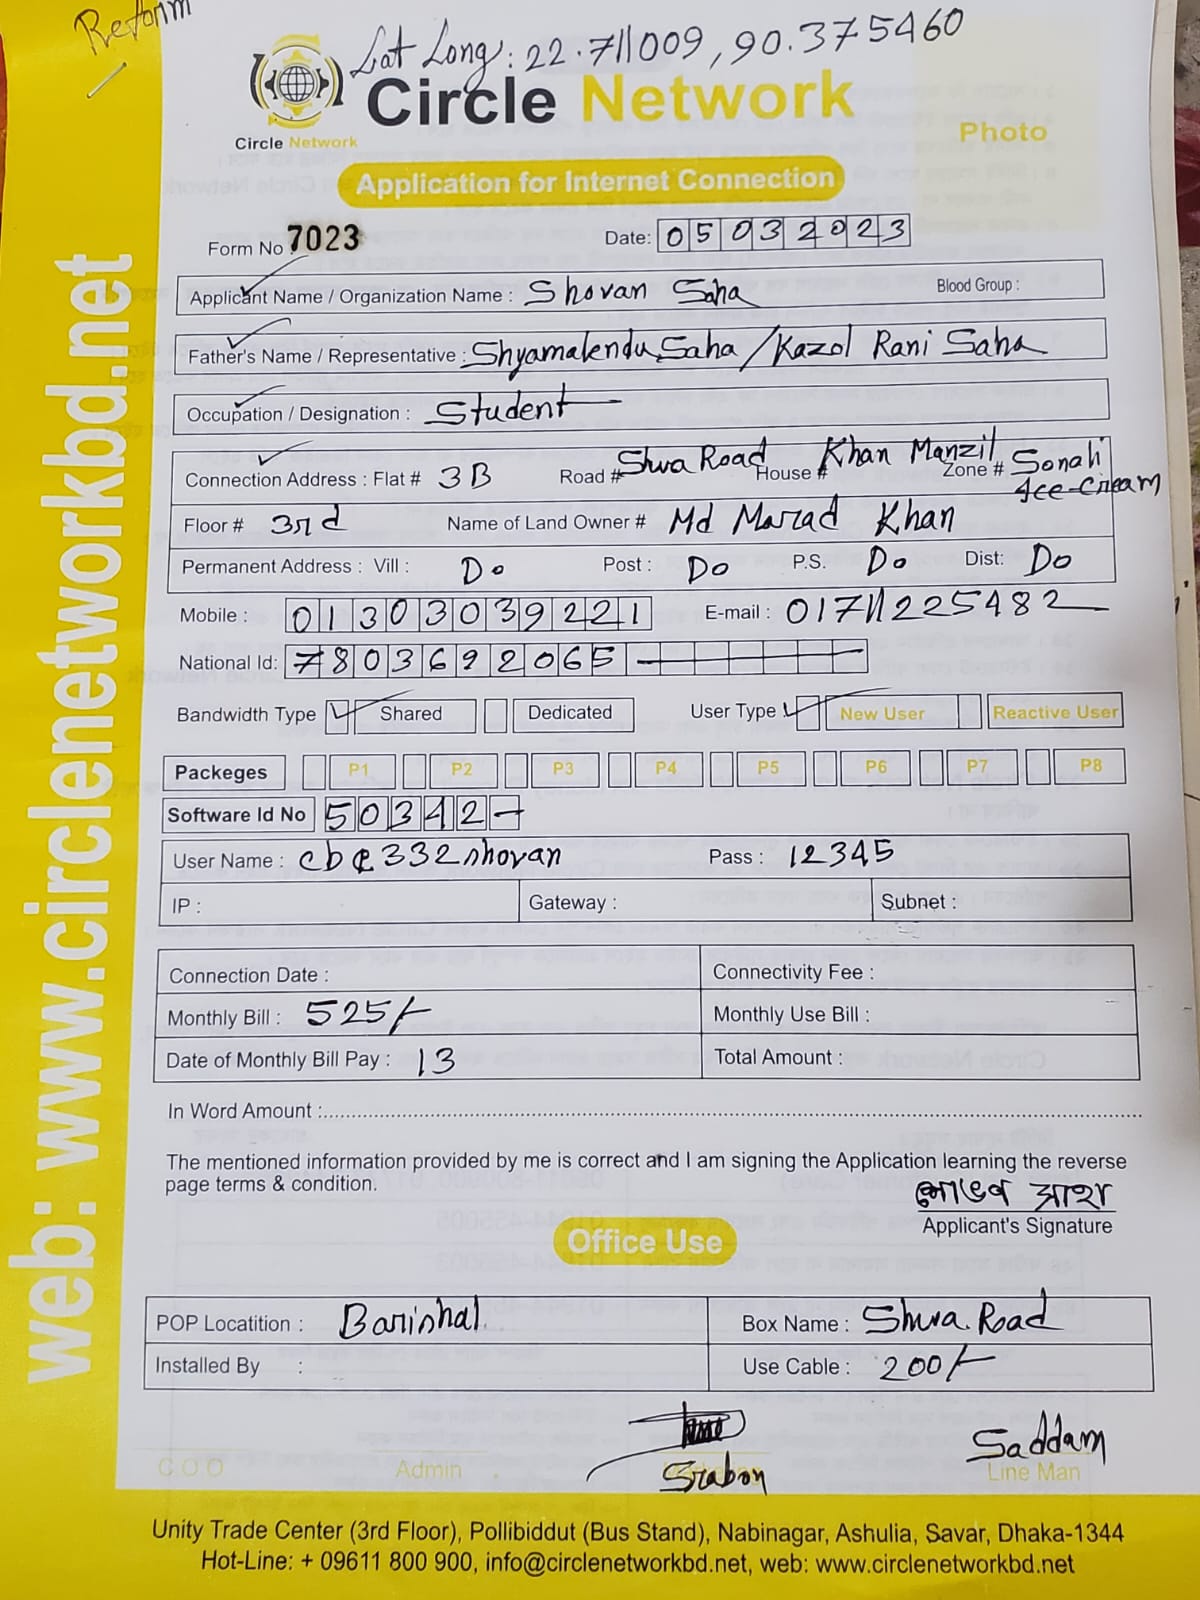 Reform
Lat Long: 22.711009, 90.375460
Circle Network
Circle Network
Photo
Application for Internet Connection
Form No 7023
Date: 05032023
Applicant Name / Organization Name : Shovan Saha Blood Group :
Father's Name / Representative : Shyamalendu Saha / Kazol Rani Saha
Occupation / Designation : Student
Connection Address : Flat # 3B Road # Shva Road House # Khan Manzil Zone # Sonali Ice-Cream
Floor # 3rd Name of Land Owner # Md Marad Khan
Permanent Address : Vill : Do Post : Do P.S. Do Dist: Do
Mobile : 01303039221 E-mail : 01711225482
National Id: 7803692065
Bandwidth Type Shared Dedicated User Type New User Reactive User
Packeges P1 P2 P3 P4 P5 P6 P7 P8
Software Id No 50342-
User Name : cbc332shovan Pass : 12345
IP : Gateway : Subnet :
Connection Date : Connectivity Fee :
Monthly Bill : 525/- Monthly Use Bill :
Date of Monthly Bill Pay : 13 Total Amount :
In Word Amount :
The mentioned information provided by me is correct and I am signing the Application learning the reverse
page terms & condition.
শোভন সাহা
Applicant's Signature
Office Use
POP Locatition : Barishal Box Name : Shva Road
Installed By : Use Cable : 200/-
Srabon Saddam
C.O.O Admin Line Man
Unity Trade Center (3rd Floor), Pollibiddut (Bus Stand), Nabinagar, Ashulia, Savar, Dhaka-1344
Hot-Line: + 09611 800 900, info@circlenetworkbd.net, web: www.circlenetworkbd.net
web: www.circlenetworkbd.net